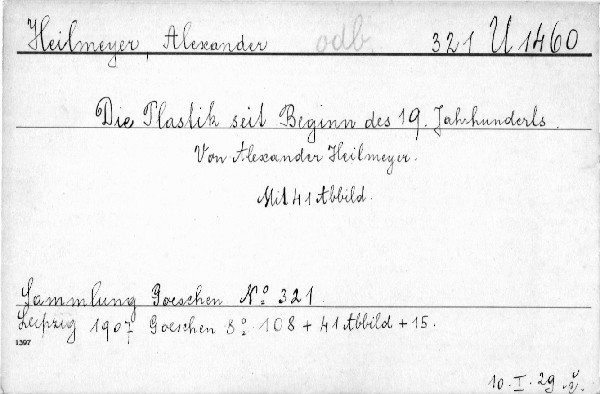 Heilmeyer, Alexander odb. 321 U 1460
Die Plastik seit Beginn des 19. Jahrhunderts.
Von Alexander Heilmeyer.
Mit 41 Abbild.
Sammlung Goeschen No. 321.
Leipzig 1907 Goeschen 8o. 108 + 41 Abbild + 15.
1397
10. I. 29